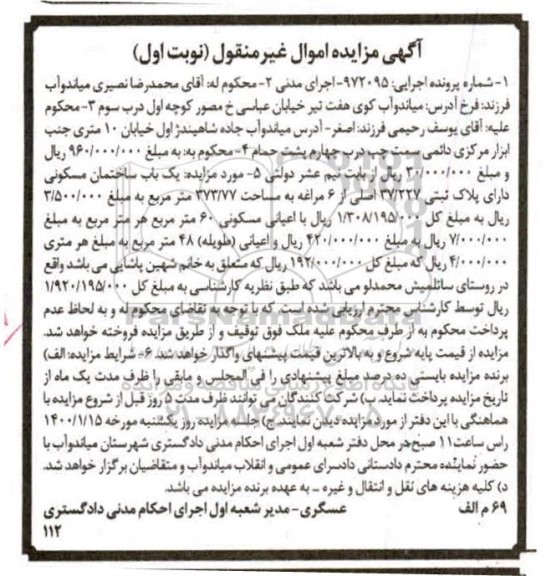 آگهی مزایده اموال غیر منقول (نوبت اول)
۱- شماره پرونده اجرایی: ۹۷۲۰۹۵- اجرای مدنی ۲- محکوم له: آقای محمدرضا نصیری میاندوآب
فرزند: فرخ آدرس: میاندوآب کوی هفت تیر خیابان عباسی خ مصور کوچه اول درب سوم ۳- محکوم
علیه: آقای یوسف رحیمی فرزند: اصغر- آدرس میاندوآب جاده شاهیندژ اول خیابان ۱۰ متری جنب
ابزار مرکزی دائمی سمت چپ درب چهارم پشت حمام ۴- محکوم به: به مبلغ ۹۶۰/۰۰۰/۰۰۰ ریال
و مبلغ ۳۰/۰۰۰/۰۰۰ ریال از بابت نیم عشر دولتی ۵- مورد مزایده: یک باب ساختمان مسکونی
دارای پلاک ثبتی ۳۷/۳۲۷ اصلی از ۶ مراغه به مساحت ۳۷۳/۷۷ متر مربع به مبلغ ۳/۵۰۰/۰۰۰
ریال به مبلغ کل ۱/۳۰۸/۱۹۵/۰۰۰ ریال با اعیانی مسکونی ۶۰ متر مربع هر متر مربع به مبلغ
۷/۰۰۰/۰۰۰ ریال به مبلغ ۴۲۰/۰۰۰/۰۰۰ ریال و اعیانی (طویله) ۴۸ متر مربع به مبلغ هر متری
۴/۰۰۰/۰۰۰ ریال که مبلغ کل ۱۹۲/۰۰۰/۰۰۰ ریال که متعلق به خانم شهین پاشایی می باشد واقع
در روستای ساتلمیش محمدلو می باشد که طبق نظریه کارشناسی به مبلغ کل ۱/۹۲۰/۱۹۵/۰۰۰
ریال توسط کارشناس محترم ارزیابی شده است. که با توجه به تقاضای محکوم له و به لحاظ عدم
پرداخت محکوم به از طرف محکوم علیه ملک فوق توقیف و از طریق مزایده فروخته خواهد شد.
مزایده از قیمت پایه شروع و به بالاترین قیمت پیشنهادی واگذار خواهد شد. ۶- شرایط مزایده: الف)
برنده مزایده بایستی ده درصد مبلغ پیشنهادی را فی المجلس و مابقی را ظرف مدت یک ماه از
تاریخ مزایده پرداخت نماید. ب) شرکت کنندگان می توانند ظرف مدت ۵ روز قبل از شروع مزایده با
هماهنگی با این دفتر از مورد مزایده دیدن نمایند. ج) جلسه مزایده روز یکشنبه مورخه ۱۴۰۰/۱/۱۵
راس ساعت ۱۱ صبح در محل دفتر شعبه اول اجرای احکام مدنی دادگستری شهرستان میاندوآب با
حضور نماینده محترم دادستانی دادسرای عمومی و انقلاب میاندوآب و متقاضیان برگزار خواهد شد.
د) کلیه هزینه های نقل و انتقال و غیره ... به عهده برنده مزایده می باشد.
۶۹ م الف عسگری - مدیر شعبه اول اجرای احکام مدنی دادگستری
۱۱۲